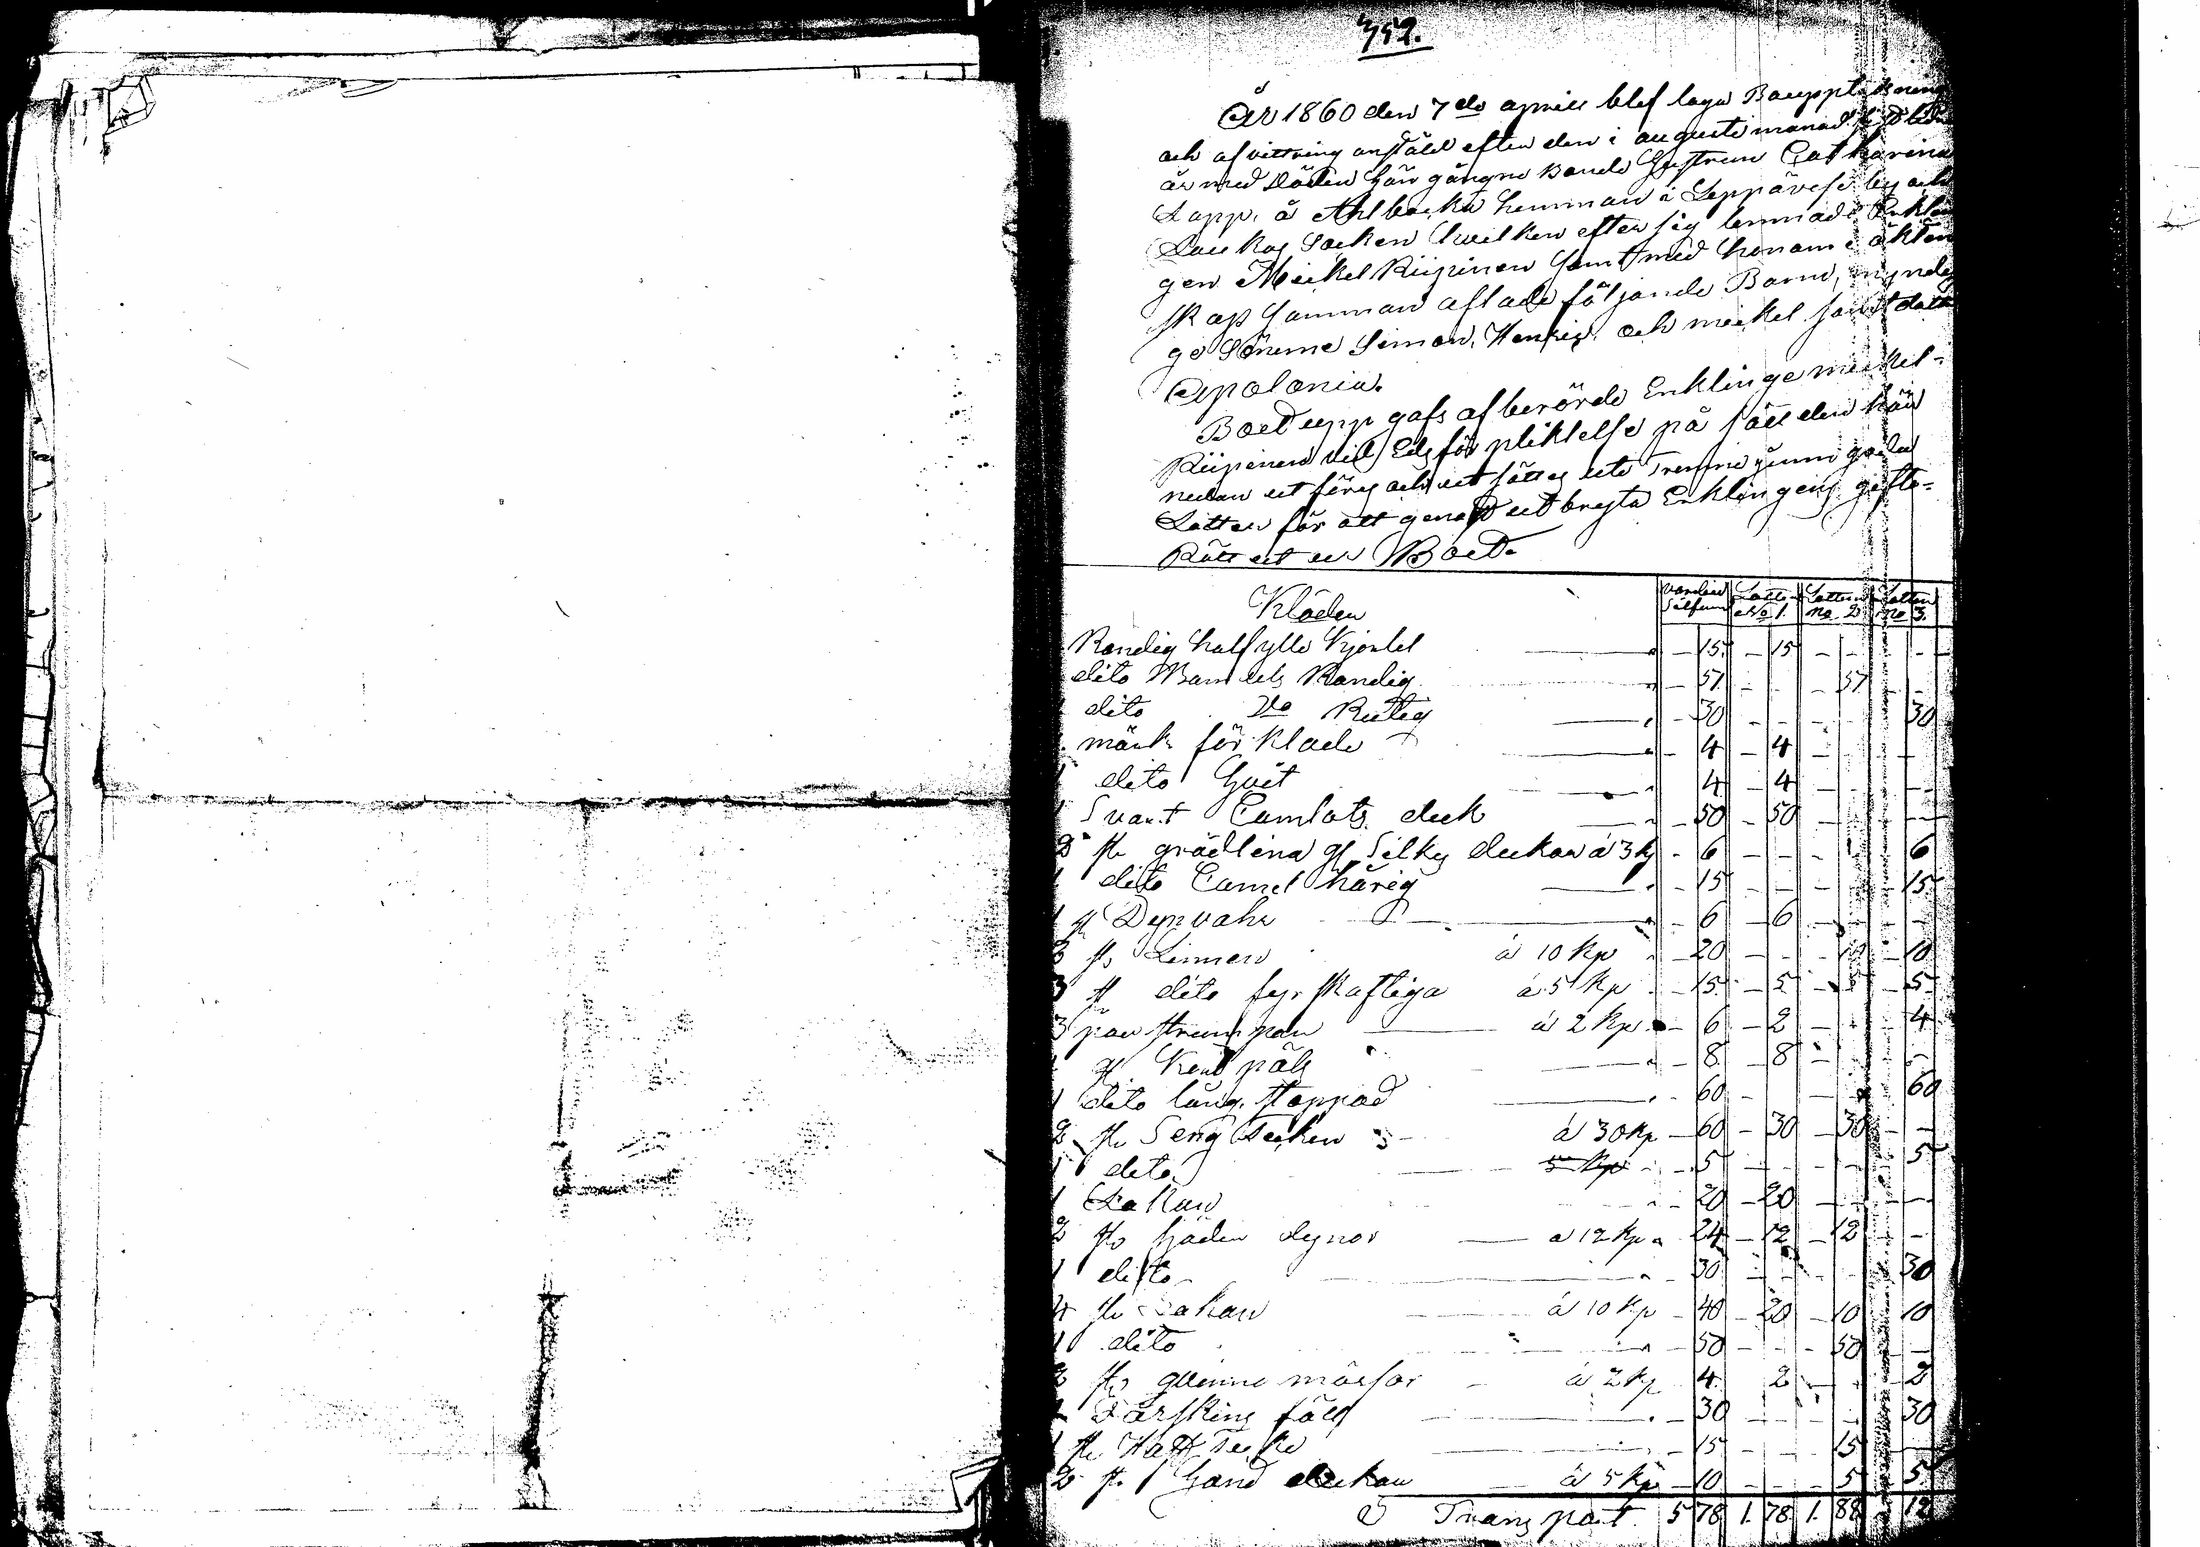 352.
År 1860 den 7de aprill blef laga Bouppteckning
och afvittring anstäld efter den i augusti månad
år med döden hän gångne Bonde Hustrun Catharina
Lapp, å Ahlbacka hemman i Leppävesi by och
Laukas Socken hvilken efter sig lemnade Enklin
gen Meikel Riipinen samt med honom i äkten
skap samman aflade följande Barn, myndi
ge Sönerne Simon, Henrig, och meikel samt dottr
Apolonia.
Boet upp gafs af berörde Enklinge meikel-
Riipinen vid Eds för pliktelse på sätt den här
nedan ut föres och ut sättes uti Trenne jemn goda
Lotter för att genast ut bryta Enklingens gifto-
Rätt ut ur Boet.
Kläder värdet Silfver Lotten No 1. Lotten No 2 Lotten No 3.
Randig half ylle Kjortel — 15 — 15 — —
dito Bamuls Randig — 57 — — 57 —
dito Do Rutig — 30 — — — 30
mörk för klade — 4 — 4 — —
1 dito hvit — 4 — 4 — —
1 Svart Camlots duk — 50 — 50 — —
2 st grädlina gl Silkes dukar á 3 k — 6 — — — 6
1 dito Camel hårig — 15 — — — 15
1 st Dynvahr — 6 — 6 — —
2 st Linnen á 10 kp — 20 — — 10 — 10
3 st dito fyr skaftiga á 5 kp — 15 — 5 — 5 — 5
3 par strumpor á 2 kp — 6 — 2 — — 4
1 gl Kort päls — 8 — 8 — —
1 dito lång stoppad — 60 — — — 60
2 st Seng Täcken á 30 kp — 60 — 30 — 30 —
1 dito 5 kp — 5 — — — 5
1 Lakan — 20 — 20 — —
2 st fjäder dynor á 12 kp — 24 — 12 — 12 —
1 dito — 30 — — — 30
4 st Lakan á 10 kp — 40 — 20 — 10 — 10
1 dito — 50 — — 50 —
2 st qvinno mössor á 2 kp — 4 — 2 — — 2
1 Fårskins fäll — 30 — — — 30
1 st — 15 — — 15 —
2 st Hand dukar á 5 kp — 10 — — 5 — 5
Transport 5 78 1. 78 1. 88 12